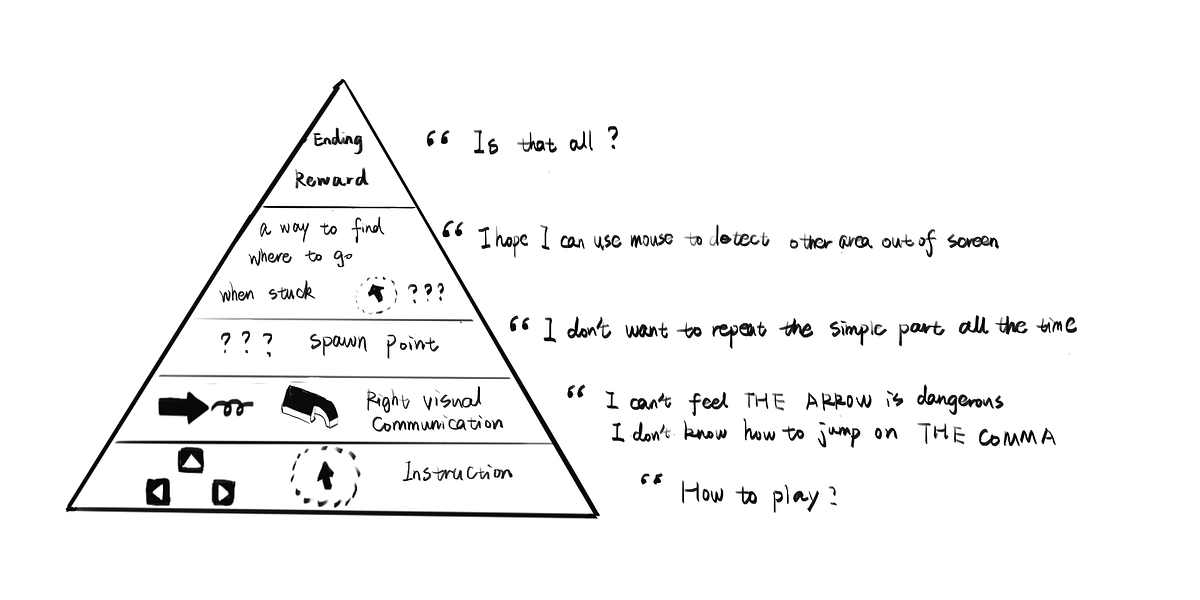 Ending
Reward
“ Is that all ?
a way to find
where to go
when stuck ???
“ I hope I can use mouse to detect other area out of screen
? ? ? spawn point
“ I don't want to repeat the simple part all the time
Right visual
Communication
“ I can't feel THE ARROW is dangerous
I don't know how to jump on THE COMMA
Instruction
“ How to play ?